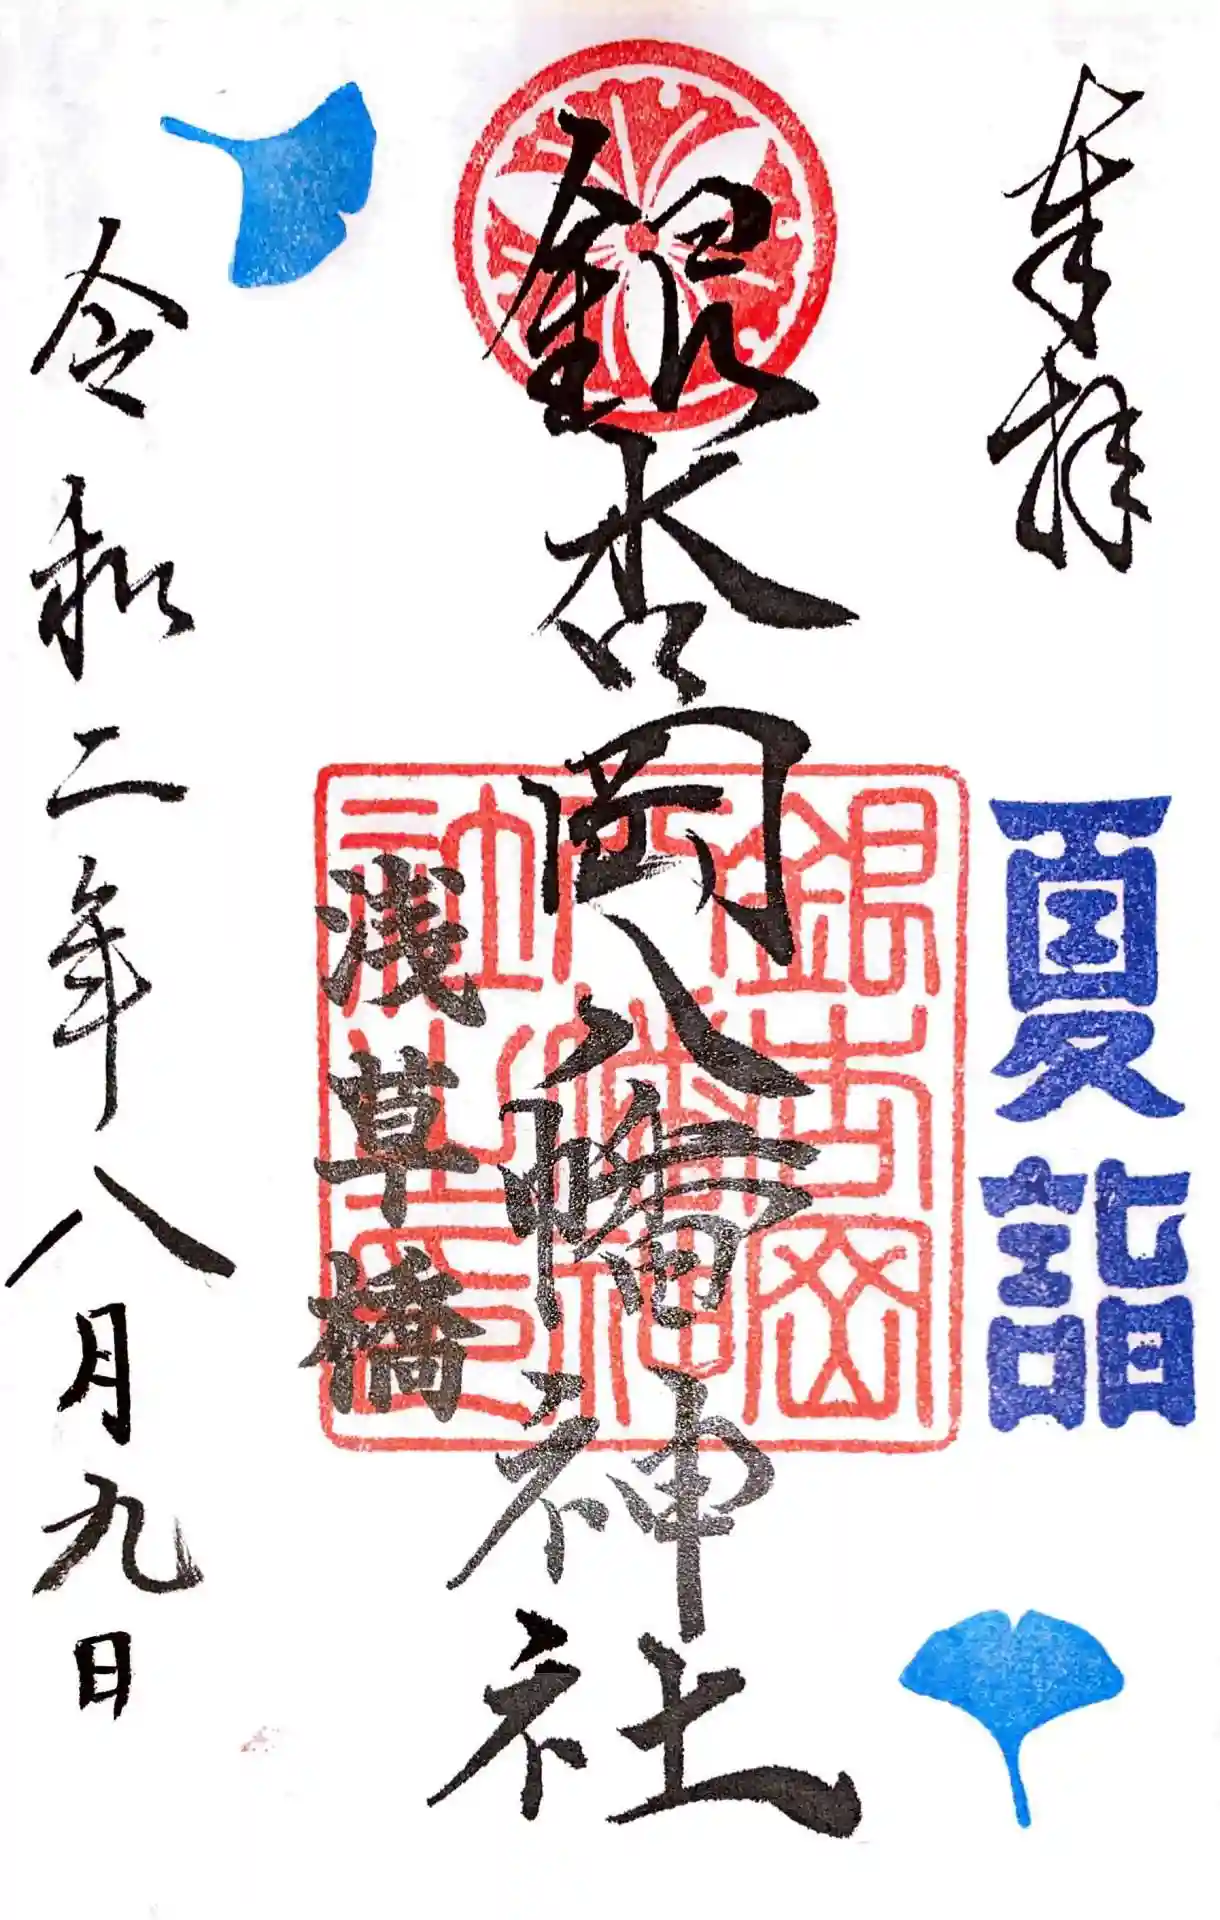 奉拝
夏詣
銀杏岡八幡神社
銀杏岡
八幡神
社之印
浅草橋
令和二年八月九日